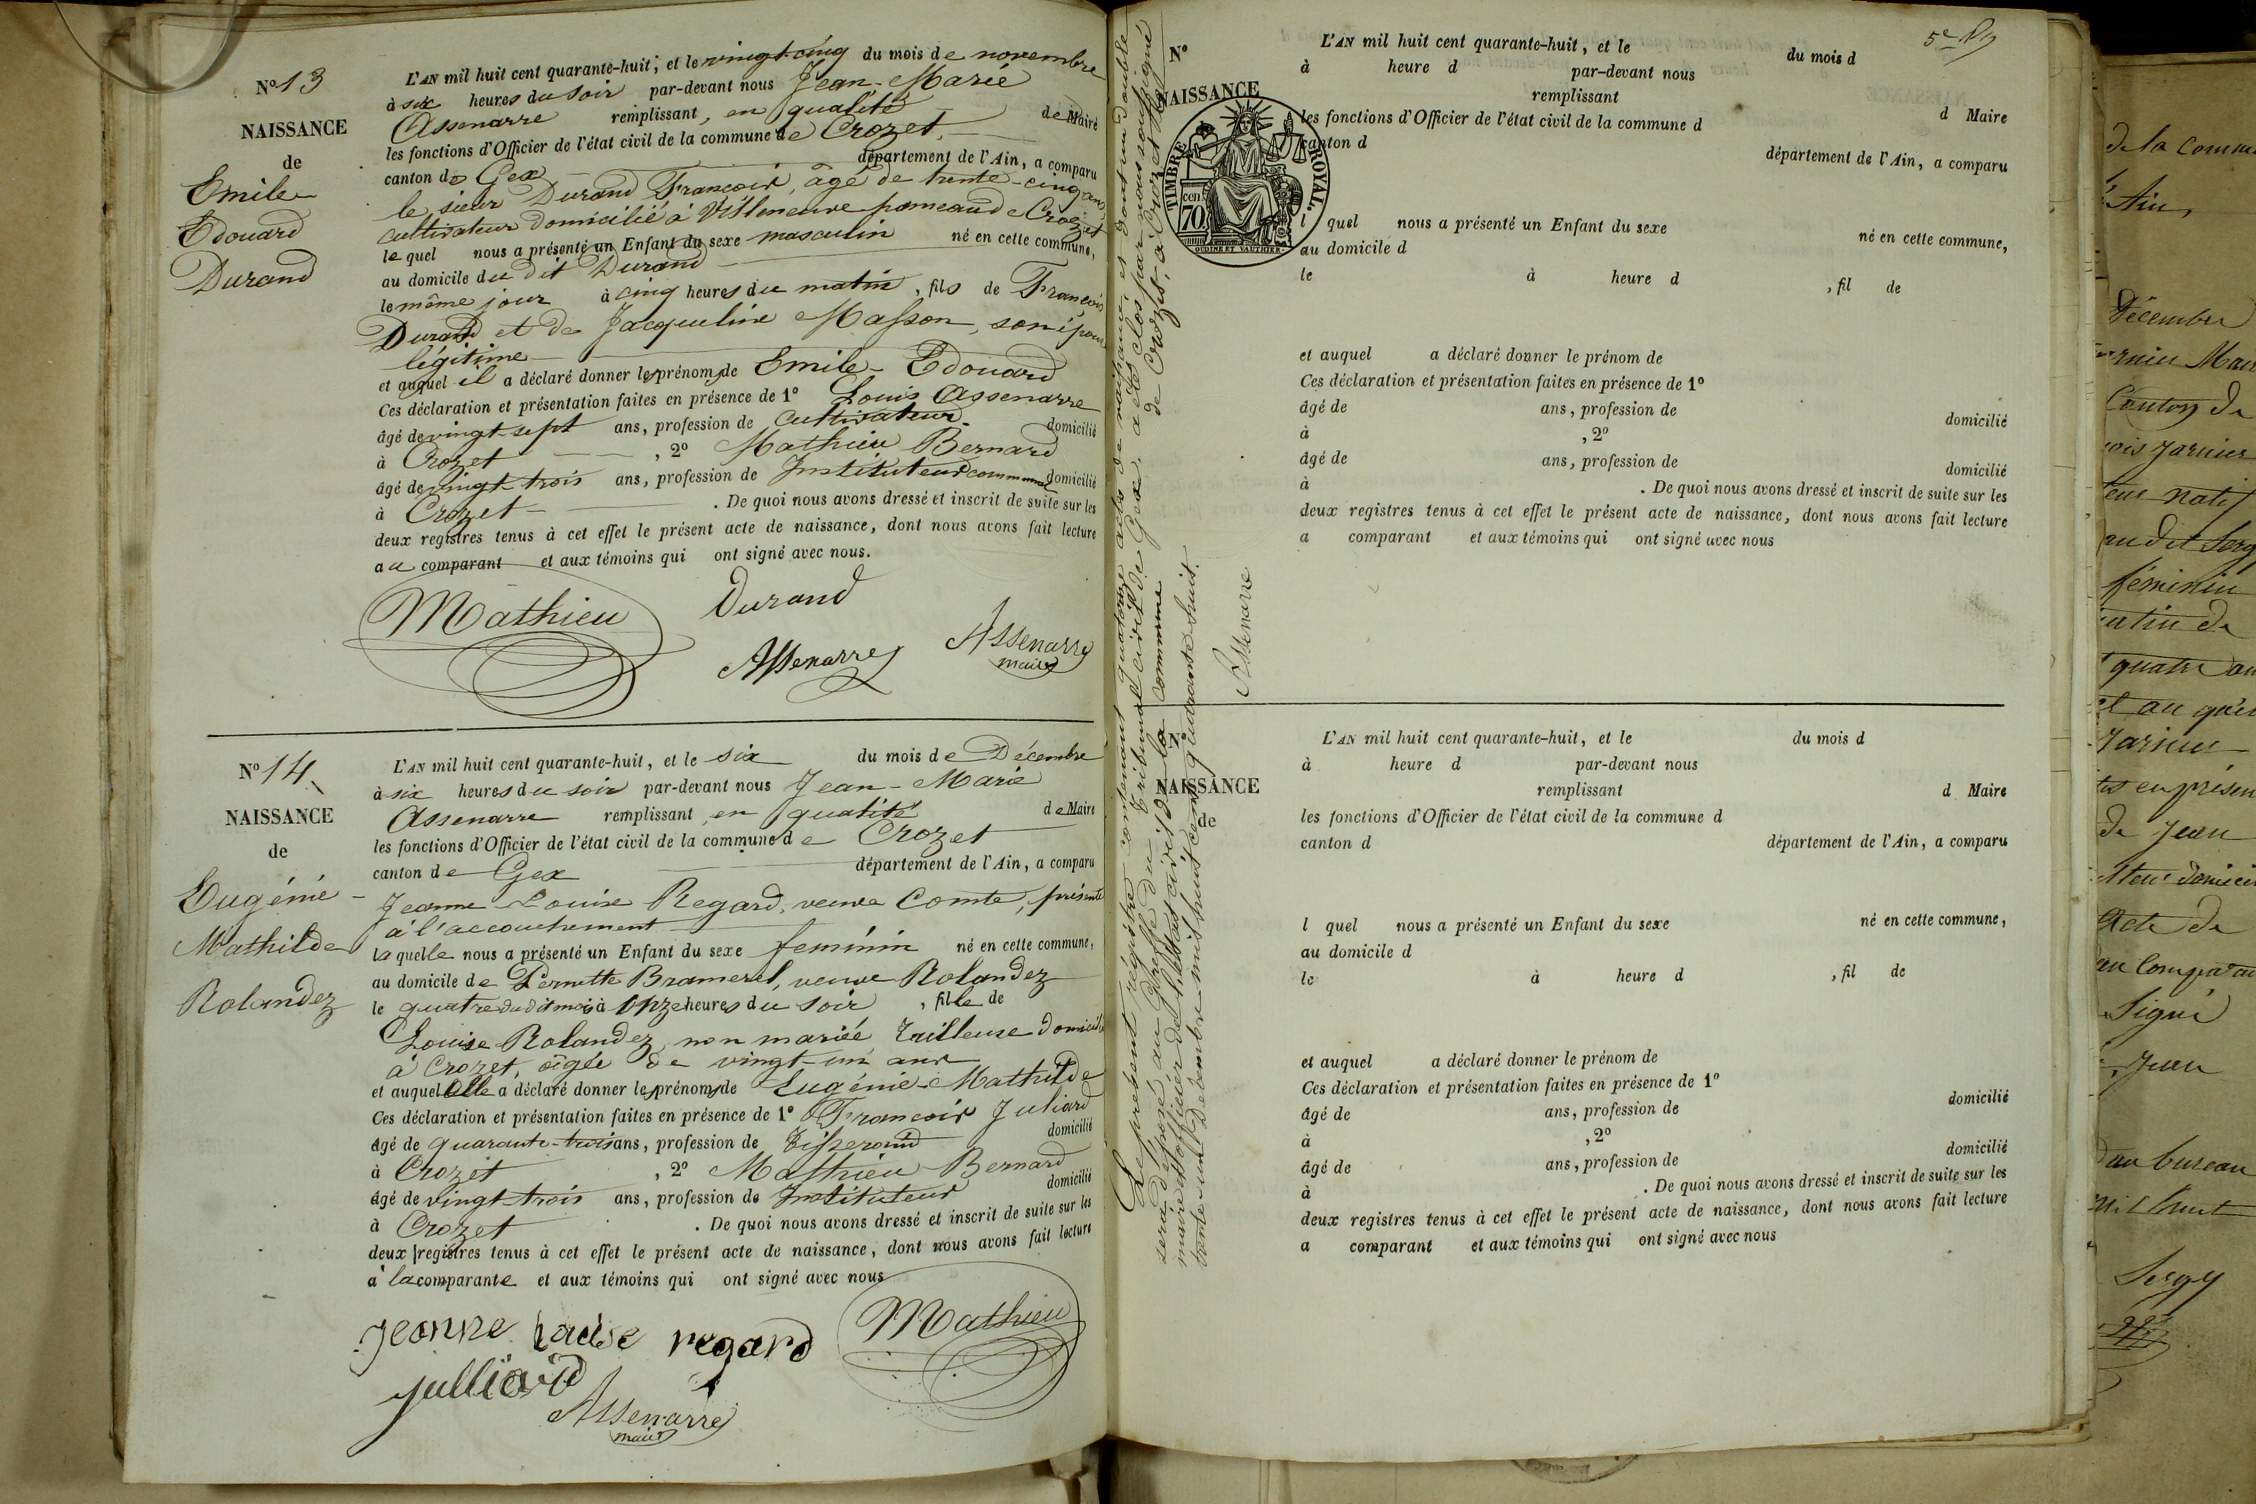 N° 13
NAISSANCE
de
Emile
Edouard
Durand
L'AN mil huit cent quarante-huit, et le vingt-cinq du mois de novembre
à six heures du soir par-devant nous Jean-Marie
Assenarre remplissant, en qualité de Maire
les fonctions d'Officier de l'état civil de la commune de Crozet,
canton de Gex département de l'Ain, a comparu
le sieur Durand François, âgé de trente-cinq ans
cultivateur domicilié à Villeneuve hameau de Crozet
le quel nous a présenté un Enfant du sexe masculin né en cette commune,
au domicile du dit Durand
le même jour à cinq heures du matin, fils de François
Durand et de Jacqueline Masson, son épouse
légitime
et auquel il a déclaré donner les prénoms de Emile-Edouard
Ces déclaration et présentation faites en présence de 1° Louis Assenarre
âgé de vingt-sept ans, profession de cultivateur domicilié
à Crozet, 2° Mathieu Bernard
âgé de vingt-trois ans, profession de Instituteur communal domicilié
à Crozet. De quoi nous avons dressé et inscrit de suite sur les
deux registres tenus à cet effet le présent acte de naissance, dont nous avons fait lecture
au comparant et aux témoins qui ont signé avec nous.
Mathieu Durand
Assenarre Assenarre
maire
N° 14
NAISSANCE
de
Eugénie-
Mathilde
Rolandez
L'AN mil huit cent quarante-huit, et le six du mois de Décembre
à six heures du soir par-devant nous Jean-Marie
Assenarre remplissant, en qualité de Maire
les fonctions d'Officier de l'état civil de la commune de Crozet
canton de Gex département de l'Ain, a comparu
Jeanne-Louise Regard, veuve Comte, présente
à l'accouchement
la quelle nous a présenté un Enfant du sexe feminin né en cette commune,
au domicile de Pernette Bramerel, veuve Rolandez
le quatre du dit mois à onze heures du soir, fille de
Louise Rolandez non mariée, tailleuse domiciliée
à Crozet, âgée de vingt-un ans
et auquel elle a déclaré donner les prénoms de Eugénie-Mathilde
Ces déclaration et présentation faites en présence de 1° François Juliard
âgé de quarante-trois ans, profession de Tisserand domicilié
à Crozet, 2° Mathieu-Bernard
âgé de vingt-trois ans, profession de Instituteur domicilié
à Crozet. De quoi nous avons dressé et inscrit de suite sur les
deux registres tenus à cet effet le présent acte de naissance, dont nous avons fait lecture
à la comparante et aux témoins qui ont signé avec nous
Jeanne Louise regard Mathieu
Julliard
Assenarre
maire
Le présent régistre contenant quatorze actes de naissance, et dont un double
sera déposé au greffe du tribunal civil de Gex, a été clos par nous soussigné
maire et officier de l'état civil de la commune de Crozet, à Crozet le
trente-un Décembre mil huit cent quarante-huit.
Assenarre
N°
NAISSANCE
TIMBRE ROYAL.
cen.
70
OUDINE ET VAUTHIER
L'AN mil huit cent quarante-huit, et le du mois d
à heure d par-devant nous
remplissant d Maire
les fonctions d'Officier de l'état civil de la commune d
canton d département de l'Ain, a comparu
l quel nous a présenté un Enfant du sexe né en cette commune,
au domicile d
le à heure d , fil de
et auquel a déclaré donner le prénom de
Ces déclaration et présentation faites en présence de 1°
âgé de ans, profession de domicilié
à , 2°
âgé de ans, profession de domicilié
à . De quoi nous avons dressé et inscrit de suite sur les
deux registres tenus à cet effet le présent acte de naissance, dont nous avons fait lecture
a comparant et aux témoins qui ont signé avec nous
N°
NAISSANCE
de
L'AN mil huit cent quarante-huit, et le du mois d
à heure d par-devant nous
remplissant d Maire
les fonctions d'Officier de l'état civil de la commune d
canton d département de l'Ain, a comparu
l quel nous a présenté un Enfant du sexe né en cette commune,
au domicile d
le à heure d , fil de
et auquel a déclaré donner le prénom de
Ces déclaration et présentation faites en présence de 1°
âgé de ans, profession de domicilié
à , 2°
âgé de ans, profession de domicilié
à . De quoi nous avons dressé et inscrit de suite sur les
deux registres tenus à cet effet le présent acte de naissance, dont nous avons fait lecture
a comparant et aux témoins qui ont signé avec nous
de la commu
Ain,
Décembre
Canton de
natif
au dit Sergy
féminin
quatre an
en présen
de Jean
Acte de
au comparan
Signé
Jean
au bureau
Sergy